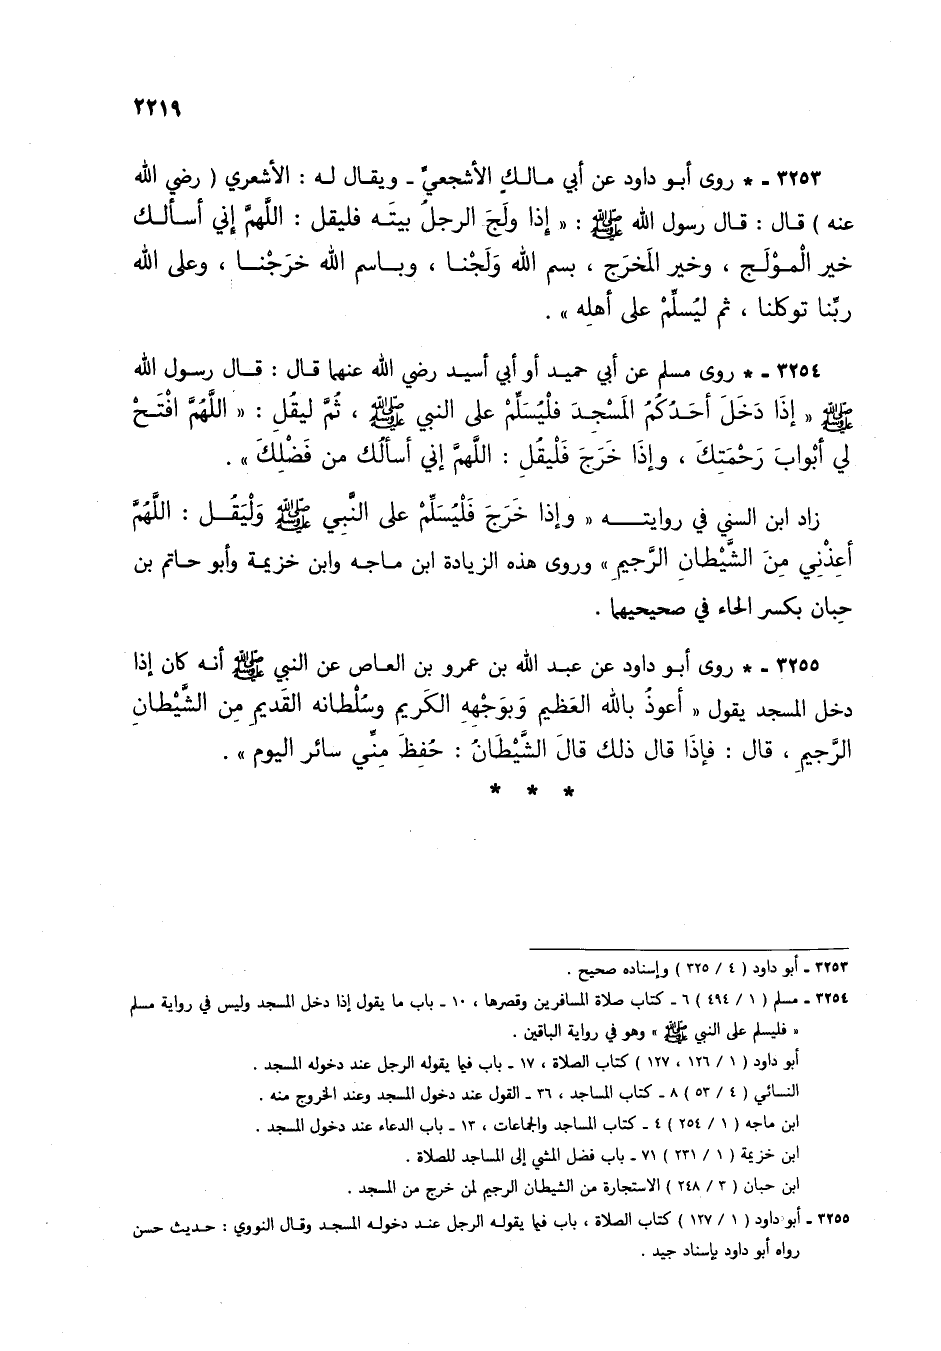 ٢٢١٩
٣٢٥٣ ـ * روى أبو داود عن أبي مالكٍ الأشجعيِّ ـ ويقال له : الأشعري ( رضي الله
عنه ) قال : قال رسول الله ﷺ : « إذا ولَجَ الرجلُ بيتَه فليقل : اللَّهمَّ إني أسألك
خير الْمولَج ، وخير المَخرَجِ ، بسم الله وَلَجْنا ، وباسم الله خرَجْنا ، وعلى الله
ربِّنا توكلنا ، ثم ليُسلِّمْ على أهلِه » .
٣٢٥٤ ـ * روى مسلم عن أبي حميد أو أبي أسيد رضي الله عنهما قال : قال رسول الله
ﷺ « إذَا دَخَلَ أحَدُكُمُ المَسْجِدَ فَلْيُسَلِّمْ على النبي ﷺ ، ثُمَّ ليقُلِ : « اللَّهُمَّ افْتَحْ
لي أبْوابَ رَحْمَتِكَ ، وإذَا خَرَجَ فَلْيقُلِ : اللَّهمَّ إني أسألُك من فَضْلِكَ » .
زاد ابن السني في روايته « وإذا خَرَجَ فَلْيُسَلِّمْ على النَّبي ﷺ وَلْيَقُل : اللَّهُمَّ
أعِذْنِي مِنَ الشَّيْطانِ الرَّجيمِ » وروى هذه الزيادة ابن ماجه وابن خزيمة وأبو حاتم بن
حِبان بكسر الحاء في صحيحيهما .
٣٢٥٥ ـ * روى أبو داود عن عبد الله بن عمرو بن العاص عن النبي ﷺ أنه كان إذا
دخل المسجد يقول « أعوذُ بالله العَظيم وَبوَجْهِهِ الكَريم وسُلْطانه القَديمِ مِن الشَّيْطانِ
الرَّجيمِ ، قال : فإذَا قال ذلك قالَ الشَّيْطَانُ : حُفِظَ مِنِّي سائر اليوم » .
* * *
٣٢٥٣ ـ أبو داود ( ٤ / ٣٢٥ ) وإسناده صحيح .
٣٢٥٤ ـ مسلم ( ١ / ٤٩٤ ) ٦ ـ كتاب صلاة المسافرين وقصرها ، ١٠ ـ باب ما يقول إذا دخل المسجد وليس في رواية مسلم
« فليسلم على النبي ﷺ » وهو في رواية الباقين .
أبو داود ( ١ / ١٢٦ ، ١٢٧ ) كتاب الصلاة ، ١٧ ـ باب فيما يقوله الرجل عند دخوله المسجد .
النسائي ( ٤ / ٥٣ ) ٨ ـ كتاب المساجد ، ٣٦ ـ القول عند دخول المسجد وعند الخروج منه .
ابن ماجه ( ١ / ٢٥٤ ) ٤ ـ كتاب المساجد والجماعات ، ١٣ ـ باب الدعاء عند دخول المسجد .
ابن خزيمة ( ١ / ٢٣١ ) ٧١ ـ باب فضل المشي إلى المساجد للصلاة .
ابن حبان ( ٣ / ٢٤٨ ) الاستجارة من الشيطان الرجيم لمن خرج من المسجد .
٣٢٥٥ ـ أبو داود ( ١ / ١٢٧ ) كتاب الصلاة ، باب فيما يقوله الرجل عند دخوله المسجد وقال النووي : حديث حسن
رواه أبو داود بإسناد جيد .